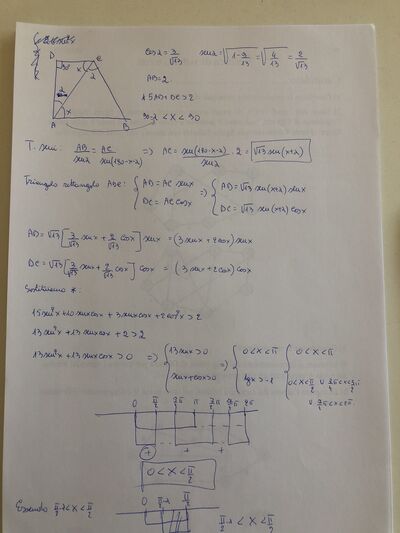 cosα = 3/√13 sinα = √(1 - 9/13) = √(4/13) = 2/√13
D C
AB = 2
15AD + DC > 2
A B
90-α < X < 90
T. seni: AB/sinα = AC/sin(180-x-α) => AC = sin(180-x-α)/sinα · 2 = √13 sin(x+α)
Triangolo rettangolo ADC: { AD = AC sinx => { AD = √13 sin(x+α) sinx
DC = AC cosx DC = √13 sin(x+α) cosx
AD = √13 [3/√13 sinx + 2/√13 cosx] sinx = (3 sinx + 2cosx) sinx
DC = √13 [3/√13 sinx + 2/√13 cosx] cosx = (3 sinx + 2cosx) cosx
Sostituiamo *:
15 sin²x + 10 sinxcosx + 3 sinxcosx + 2cos²x > 2
13 sin²x + 13 sinxcosx + 2 > 2
13 sin²x + 13 sinxcosx > 0 => { 13 sinx > 0 => { 0 < X < π { 0 < X < π
sinx + cosx > 0 tgx > -1
0 < X < π/2
Essendo π/2-α < X < π/2
0 π/2-α π/2
π/2-α < X < π/2